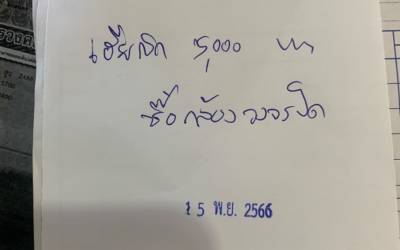 เฮียกิด 5,000 บาท
ซื้อกล้องวงจรปิด
15 พ.ย. 2566